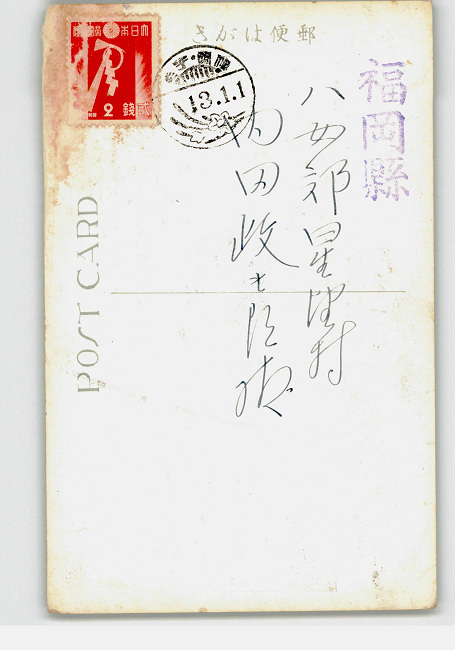 きがは便郵
大日本帝國郵便
2
貳錢
13.1.1
福岡縣
八女郡星野村
内田政士郎様
POST CARD